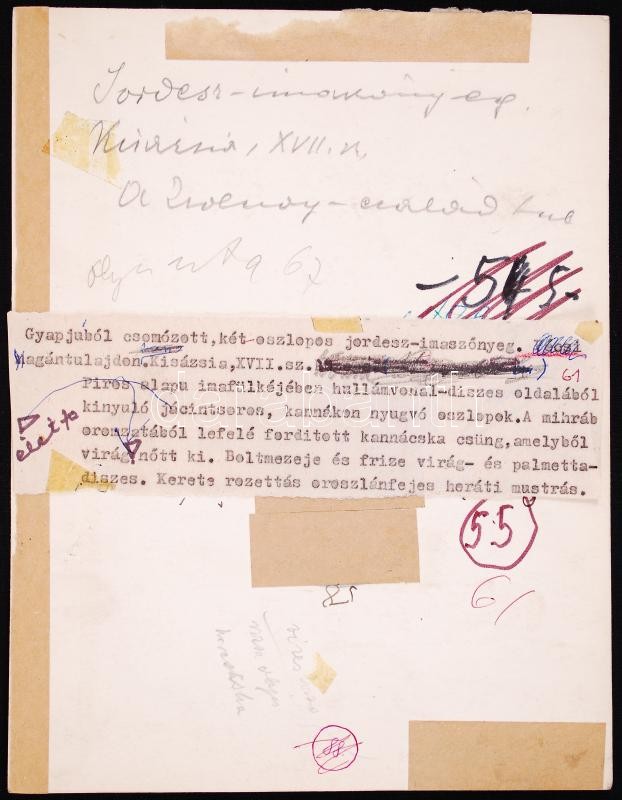 Jordesz-imaszőnyeg.
Kisázsia, XVII. sz,
A Zsolnay-család tul
67
- 545.
Gyapjuból csomózott,két oszlopos jordesz-imaszőnyeg.
Magántulajdon.Kisázsia,XVII.sz. 61
Piros alapu imafülkéjében hullámvonal-díszes oldalából
kinyuló jácintsoros, kannákon nyugvó oszlopok.A mihráb
oromzatából lefelé forditott kannácska csüng,amelyből
virág nőtt ki. Boltmezeje és frize virág- és palmetta-
díszes. Kerete rozettás oroszlánfejes heráti mustrás.
55
61
88